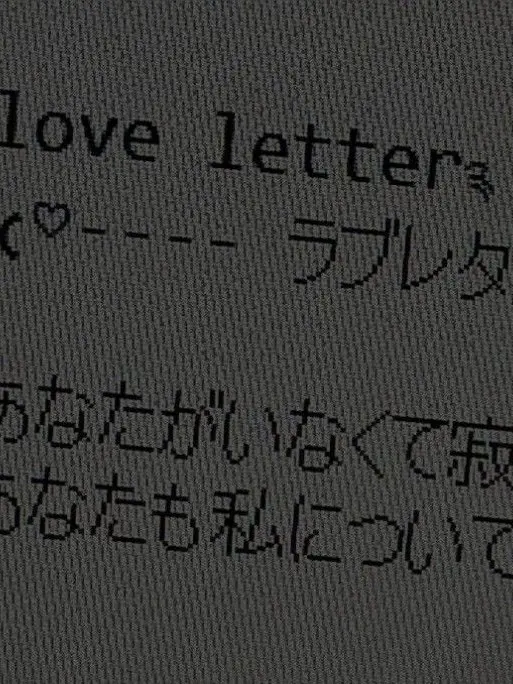 love letter༉
☾♡---- ラブレタ
あなたがいなくて寂
あなたも私について